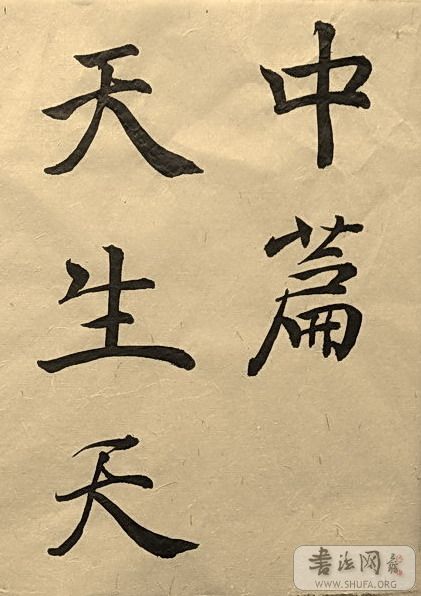 中篇
天生天
書法网
WWW.SHUFA.ORG